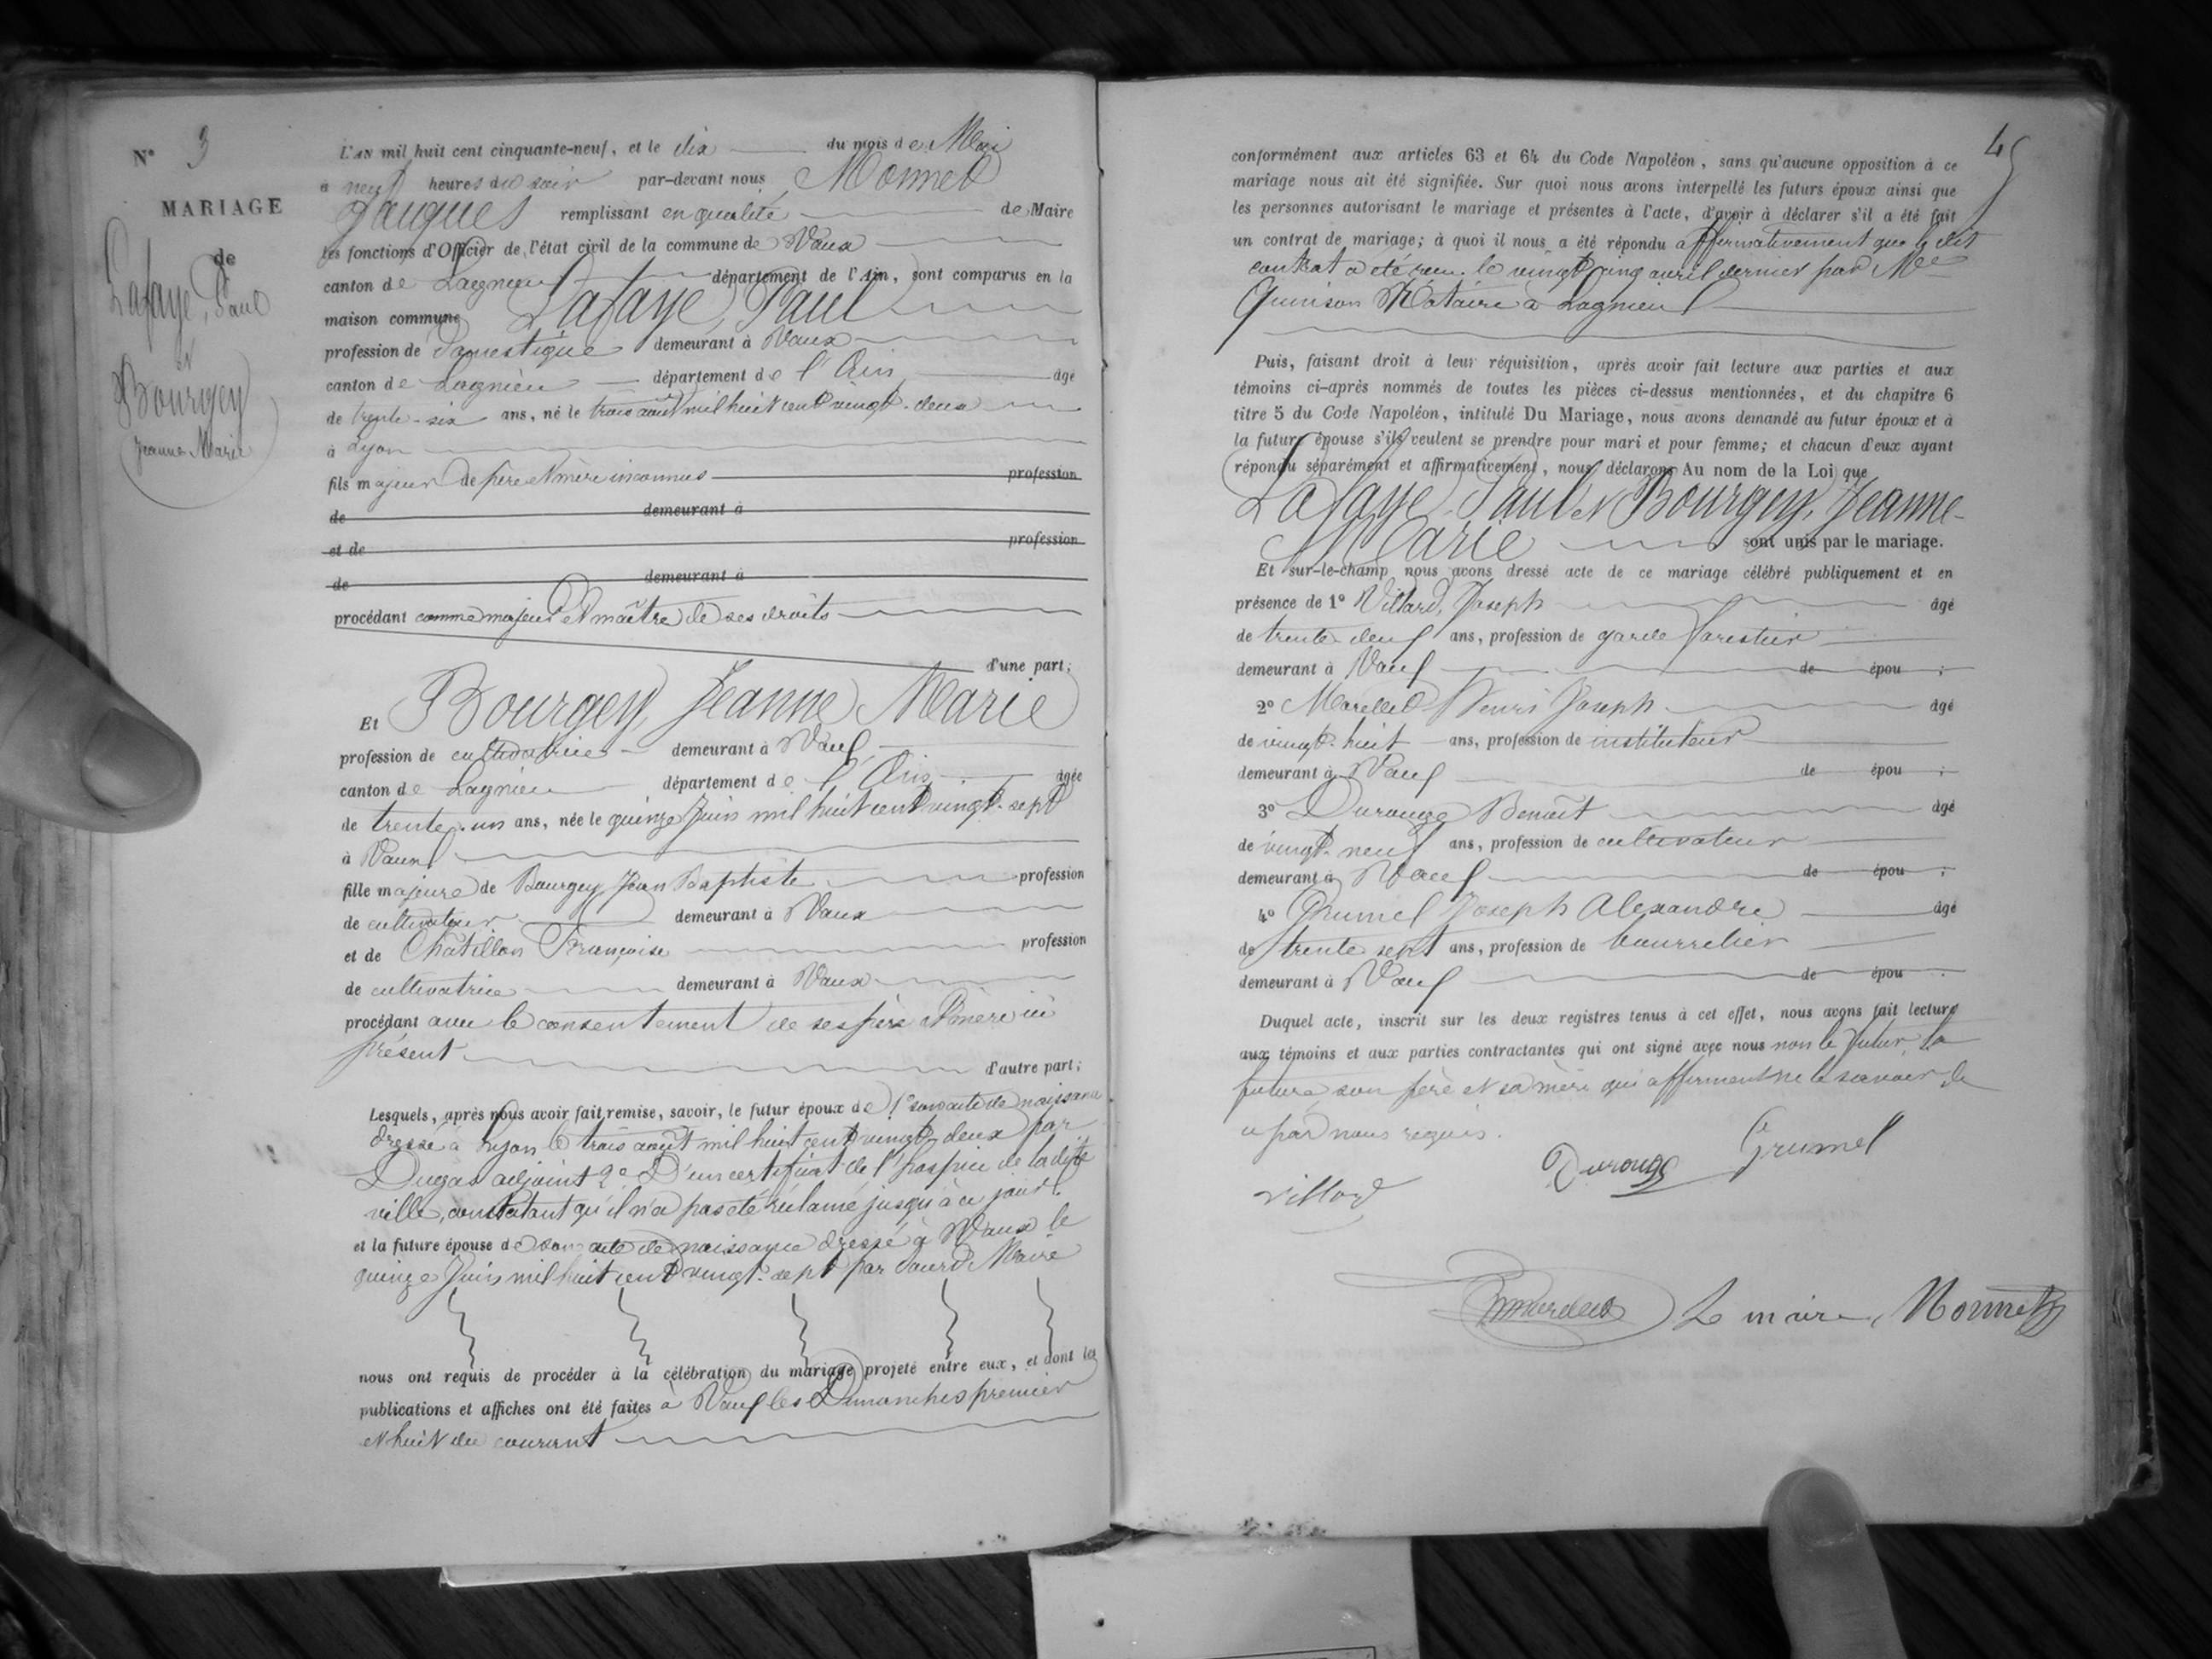 N° 3
MARIAGE
de
Lafaye, Paul
et
Bourgey
Jeanne Marie
L'AN mil huit cent cinquante-neuf, et le dix du mois de Mai
à neuf heures du soir par-devant nous Monnet
Jacques remplissant en qualité de Maire
les fonctions d'Officier de l'état civil de la commune de Vaux
canton de Lagnieu département de l'Ain, sont comparus en la
maison commune Lafaye, Paul
profession de Domestique demeurant à Vaux
canton de Lagnieu département de l'Ain âgé
de trente-six ans, né le trois août mil huit cent vingt-deux
à Lyon
fils majeur de père et mère inconnus profession
de demeurant à
et de profession
de demeurant à
procédant comme majeur et maître de ses droits
d'une part;
Et Bourgey, Jeanne Marie
profession de cultivatrice demeurant à Vaux
canton de Lagnieu département de l'Ain âgée
de trente-un ans, née le quinze Juin mil huit cent vingt-sept
à Vaux
fille majeure de Bourgey Jean Baptiste profession
de cultivateur demeurant à Vaux
et de Chatillon Françoise profession
de cultivatrice demeurant à Vaux
procédant avec le consentement de ses père et mère ici
présent
d'autre part;
Lesquels, après nous avoir fait remise, savoir, le futur époux de 1° son acte de naissance
dressé à Lyon le trois août mil huit cent vingt-deux par
Dugas adjoint 2° D'un certificat de l'hospice de ladite
ville, constatant qu'il n'a pas été réclamé jusqu'à ce jour
et la future épouse de son acte de naissance dressé à Vaux le
quinze Juin mil huit cent vingt-sept par Maire
nous ont requis de procéder à la célébration du mariage projeté entre eux, et dont les
publications et affiches ont été faites à Vaux les Dimanches premier
et huit du courant
45
conformément aux articles 63 et 64 du Code Napoléon, sans qu'aucune opposition à ce
mariage nous ait été signifiée. Sur quoi nous avons interpellé les futurs époux ainsi que
les personnes autorisant le mariage et présentes à l'acte, d'avoir à déclarer s'il a été fait
un contrat de mariage; à quoi il nous a été répondu affirmativement que le dit
contrat a été reçu le vingt cinq avril dernier par Me
Quinson Notaire à Lagnieu
Puis, faisant droit à leur réquisition, après avoir fait lecture aux parties et aux
témoins ci-après nommés de toutes les pièces ci-dessus mentionnées, et du chapitre 6
titre 5 du Code Napoléon, intitulé Du Mariage, nous avons demandé au futur époux et à
la future épouse s'ils veulent se prendre pour mari et pour femme; et chacun d'eux ayant
répondu séparément et affirmativement, nous déclarons Au nom de la Loi que
Lafaye Paul et Bourgey, Jeanne-
Marie sont unis par le mariage.
Et sur-le-champ nous avons dressé acte de ce mariage célébré publiquement et en
présence de 1° Villard, Joseph âgé
de trente-deux ans, profession de garde forestier
demeurant à Vaux de épou ;
2° Henri Joseph âgé
de vingt-huit ans, profession de instituteur
demeurant à Vaux de épou ;
3° Durouge Benoît âgé
de vingt-neuf ans, profession de cultivateur
demeurant à Vaux de épou ;
4° Grumel Joseph Alexandre âgé
de trente sept ans, profession de bourrelier
demeurant à Vaux de épou .
Duquel acte, inscrit sur les deux registres tenus à cet effet, nous avons fait lecture
aux témoins et aux parties contractantes qui ont signé avec nous non le futur, la
future, son père et sa mère qui affirment ne le savoir de
ce par nous requis.
Villard
Durouge
Grumel
Le maire, Monnet